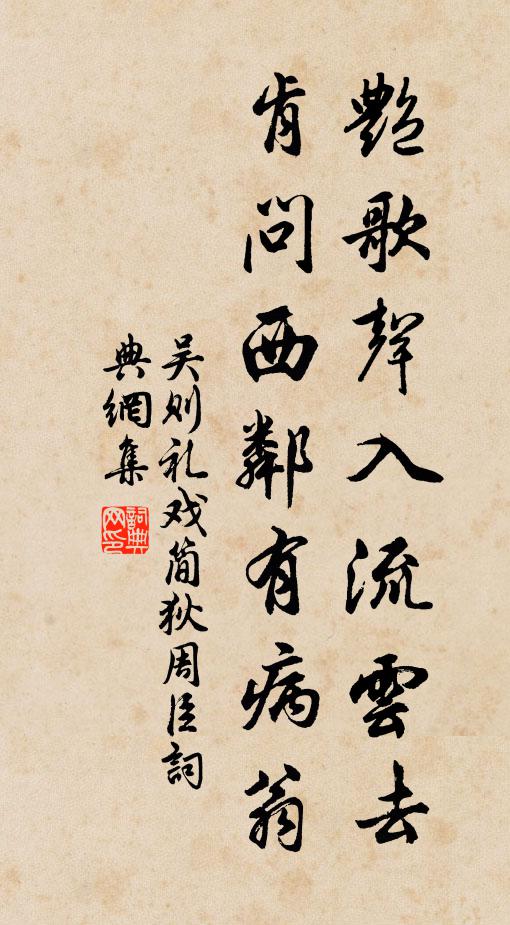 艷歌聲入流雲去
肯問西鄰有病翁
吴则礼戏简狄周臣詞
典網集
詞典
网印